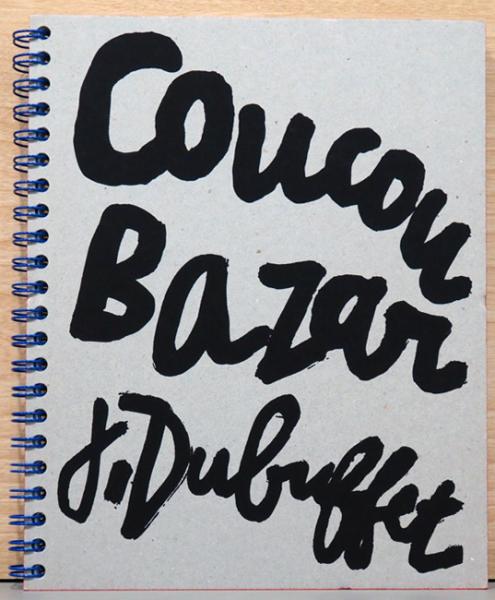 Coucou
Bazar
J. Dubuffet